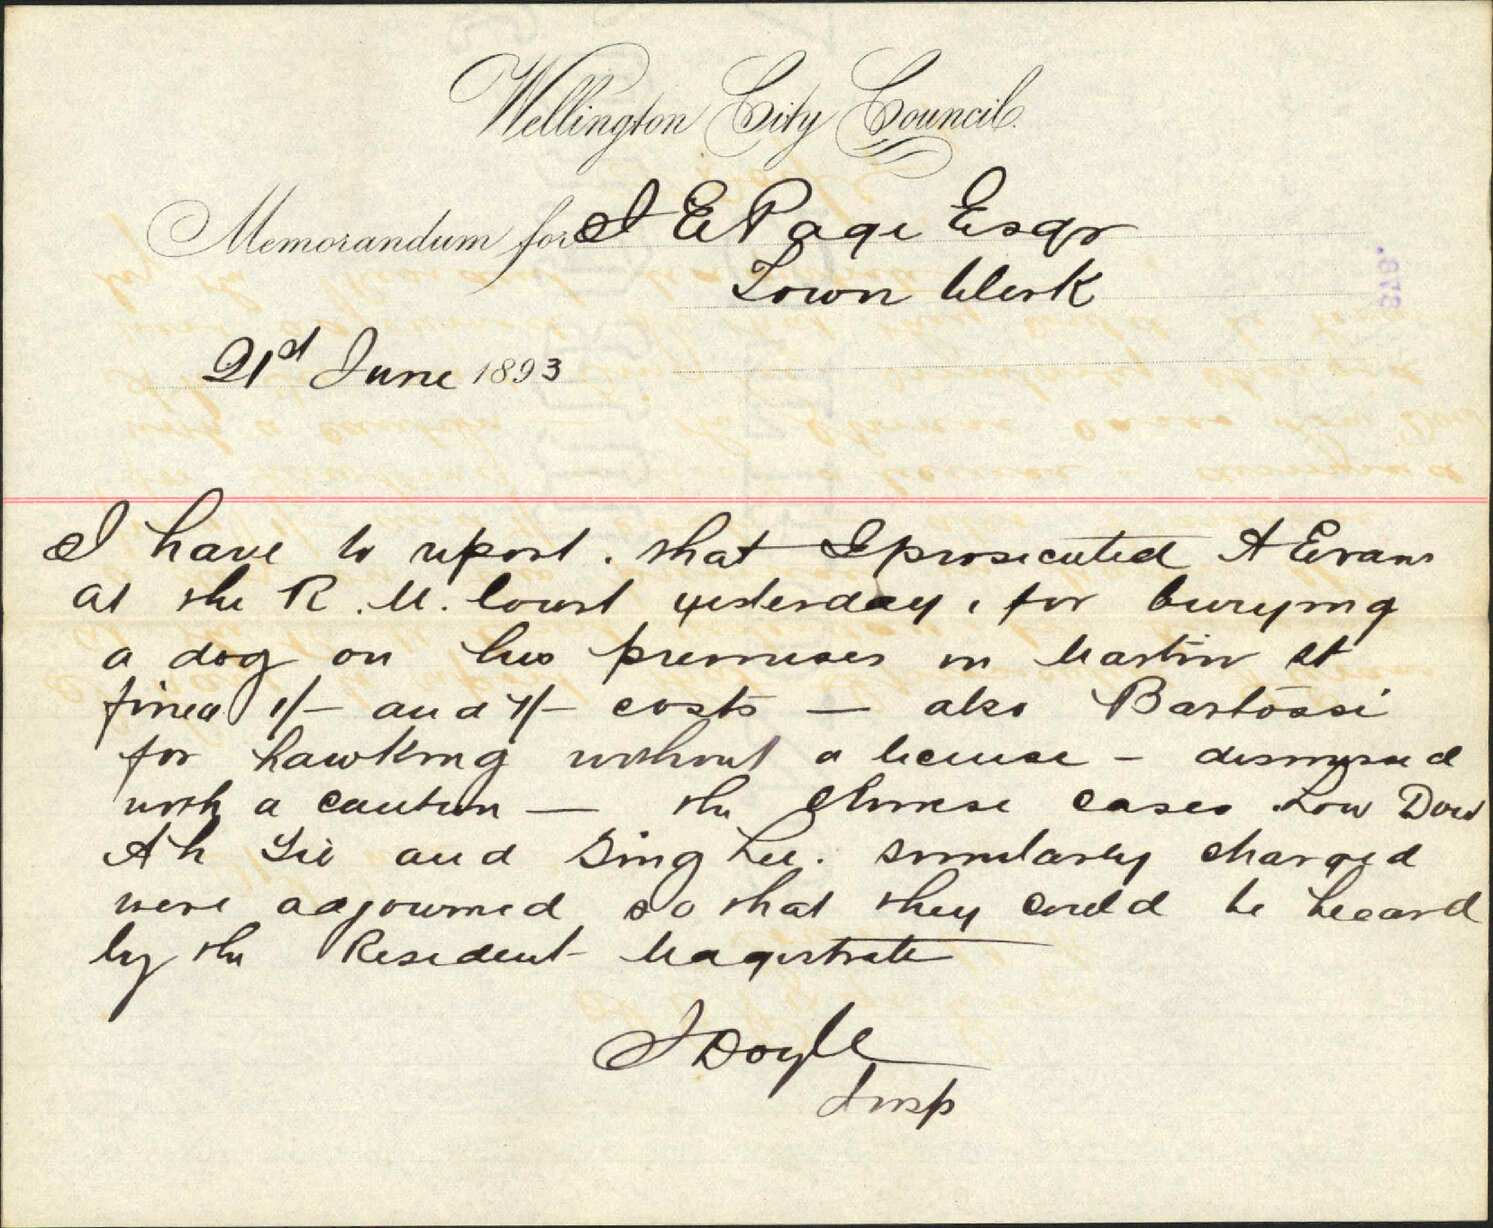 Wellington City Council.
Memorandum for J E Page Esqr
Town Clerk
21st June 1893
I have to report. that I prosecuted A Evans
at the R. M. Court yesterday, for burying
a dog on his premises in Martin St
fined 1/- and 7/- costs — also Bartossi
for hawking without a license - dismissed
with a caution — the Chinese cases Low Dow
Ah Gie and Sing Lee. similarly charged
were adjourned so that they could be heard
by the Resident Magistrate
J Doyle
Insp